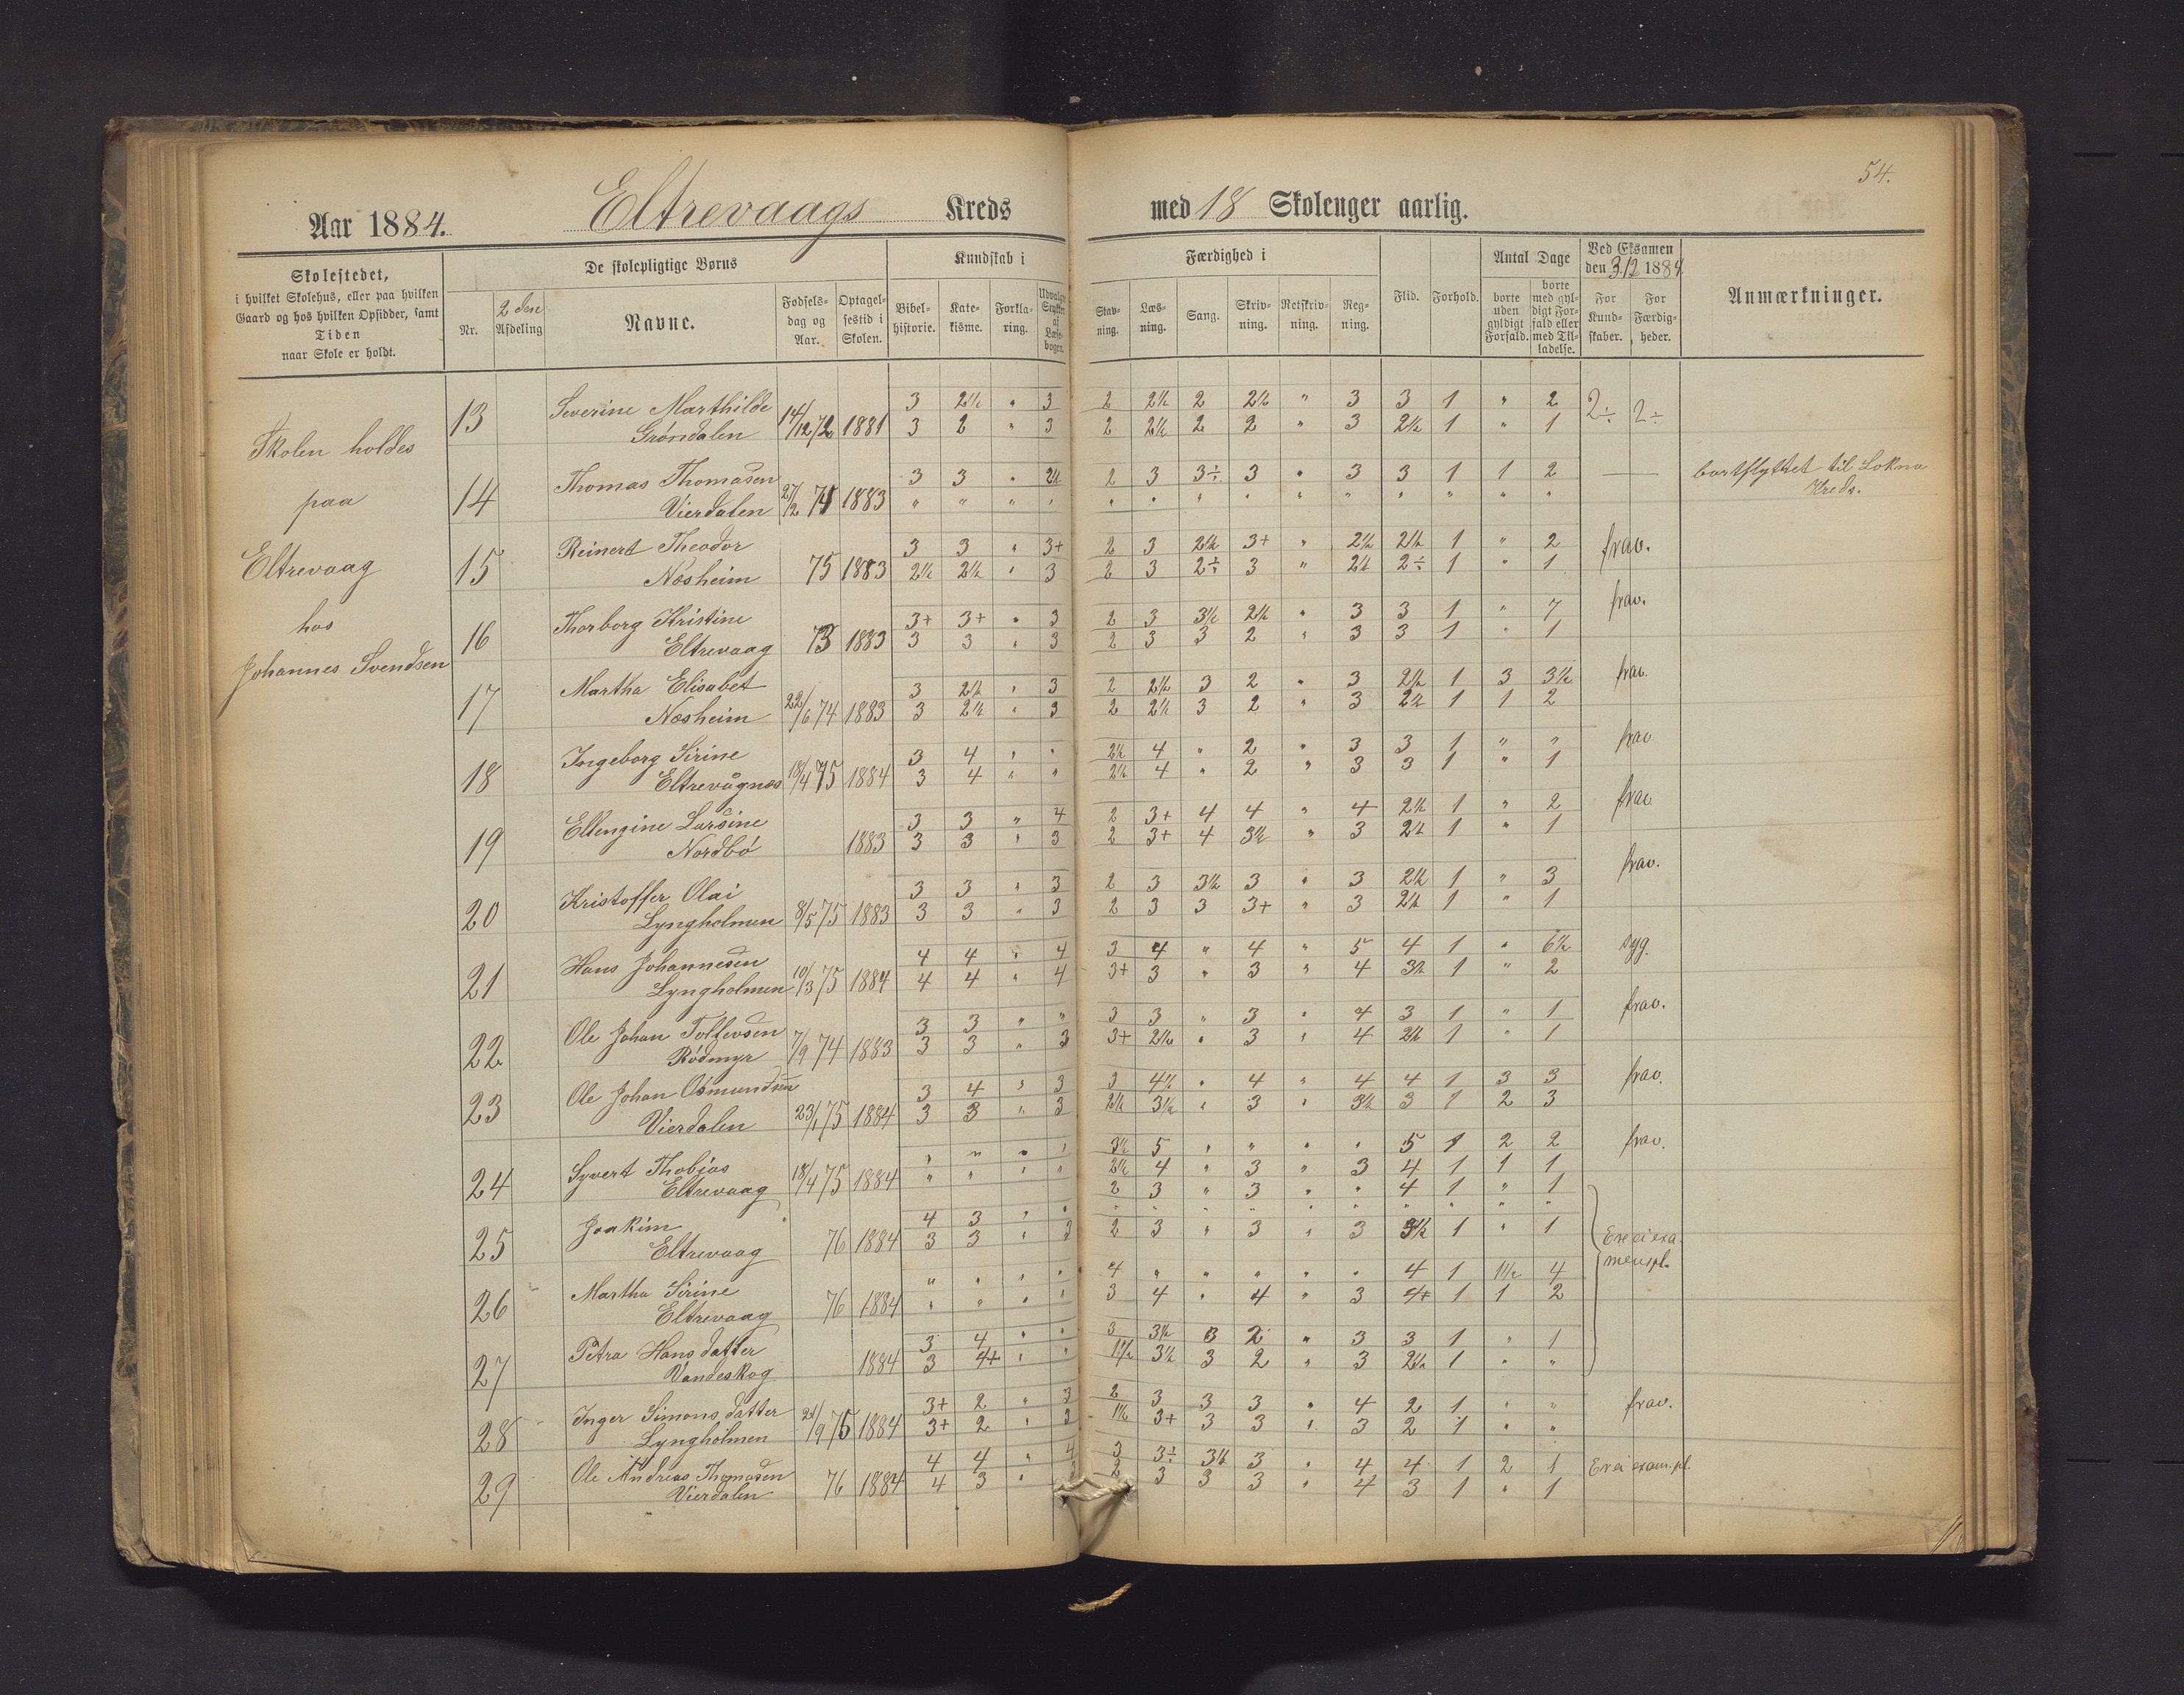 54.
Aar 1884. Eltrevaags Kreds med 18 Skolenger aarlig.
Skolestedet,
i hvilket Skolehus, eller paa hvilken
Gaard og hos hvilken Opsidder, samt
Tiden
naar Skole er holdt.
De skolepligtige Børns
Nr.
2den
Afdeling
Navne.
Fødsels-
dag og
Aar.
Optagel-
sestid i
Skolen.
Kundskab i
Bibel-
historie.
Kate-
kisme.
Forkla-
ring.
Udvalgte
Stykker
af
Læse-
bogen.
Færdighed i
Stav-
ning.
Læs-
ning.
Sang.
Skriv-
ning.
Retskriv-
ning.
Reg-
ning.
Flid.
Forhold.
Antal Dage
borte
uden
gyldigt
Forfald.
borte
med gyl-
digt For-
fald eller
med Til-
ladelse.
Ved Eksamen
den 3/12 1884
For
Kund-
skaber.
For
Færdig-
heder.
Anmærkninger.
Skolen holdes
paa
Eltrevaag
hos
Johannes Svendsen
13 Severine Marthilde 3 2½ " 3 2 2½ 2 2½ " 3 3 1 " 2 2÷ 2÷
Grøndalen 14/12 72 1881 3 2 " 3 2 2½ 2 2 " 3 2½ 1 " 1
14 Thomas Thomasen 3 3 " 2½ 2 3 3÷ 3 " 3 3 1 1 2 — bortflyttet til Lokna
Vierdalen 27/12 74 1883 " " " " " " " " " " " " " " Kreds.
15 Reinert Theodor 3 3 " 3+ 2 3 2½ 3+ " 2½ 2½ 1 " 2 frav.
Næsheim 75 1883 2½ 2½ " 3 2 3 2÷ 3 " 2½ 2÷ 1 " 1
16 Thorborg Kristine 3+ 3+ " 3 2 3 3½ 2½ " 3 3 1 " 7 frav.
Eltrevaag 73 1883 3 3 " 3 2 3 3 2 " 3 3 1 " 1
17 Martha Elisabet 3 2½ " 3 2 2½ 3 2 " 3 2½ 1 3 3½ frav.
Næsheim 22/6 74 1883 3 2½ " 3 2 2½ 3 2 " 3 2½ 1 1 2
18 Ingeborg Sirine 3 4 " " 2½ 4 " 2 " 3 3 1 " " frav.
Eltrevågnæs 18/4 75 1884 3 4 " " 2½ 4 " 2 " 3 3 1 " 1
19 Ellengine Larsine 3 3 " 4 2 3+ 4 4 " 4 2½ 1 " 2 frav.
Nordbø 1883 3 3 " 3 2 3+ 4 3½ " 3 2½ 1 " 1
20 Kristoffer Olai 3 3 " 3 2 3 3½ 3 " 3 2½ 1 " 3 frav.
Lyngholmen 8/5 75 1883 3 3 " 3 2 3 3 3+ " 3 2½ 1 " 1
21 Hans Johannesen 4 4 " 4 3 4 " 4 " 5 4 1 " 6½ syg.
Lyngholmen 10/3 75 1884 4 4 " 4 3+ 3 " 3 " 4 3½ 1 " 2
22 Ole Johan Tollevsen 3 3 " " 3 3 " 3 " 4 3 1 " 1 frav.
Rødmyr 7/9 74 1883 3 3 " 3 3+ 2½ " 3 " 4 2½ 1 " 1
23 Ole Johan Osmundsen 3 4 " 3 3 4½ " 4 " 4 4 1 3 3 frav.
Vierdalen 23/1 75 1884 3 3 " 3 2½ 3½ " 3 " 3½ 3 1 2 3
24 Syvert Thobias " " " " 3½ 5 " " " " 5 1 2 2 frav.
Eltrevaag 18/4 75 1884 " " " " 2½ 4 " 3 " 3 4 1 1 1
2 3 " 3 " " 4 1 " 1
25 Joakim 4 3 " " " " " " " " " " " "
Eltrevaag 76 1884 3 3 " 3 2 3 " 3 " 3 3½ 1 " 1 Ere ei exa-
menspl.
26 Martha Sirine " " " " 4 " " " " " 4 1 1½ 4
Eltrevaag 76 1884 " " " " 3 4 " 4 " 3 4+ 1 1 2
27 Petra Hansdatter 3 4 " " 3 3½ 3 2 " 3 3 1 " 1
Vandeskog 1884 3 4+ " " 1½ 3½ 3 2 " 3 2½ 1 " "
28 Inger Simonsdatter 3+ 2 " 3 2 3 3 3 " 4 2 1 " " frav.
Lyngholmen 21/9 75 1884 3+ 2 " 3 1½ 3+ 3 3 " 3 2 1 " "
29 Ole Andreas Thomasen 4 4 " 4 3 3÷ 3½ 3 " 4 4 1 2 1 Er ei exam.pl.
Vierdalen 76 1884 4 3 " 3 2 3 3 3 " 4 3 1 " 1